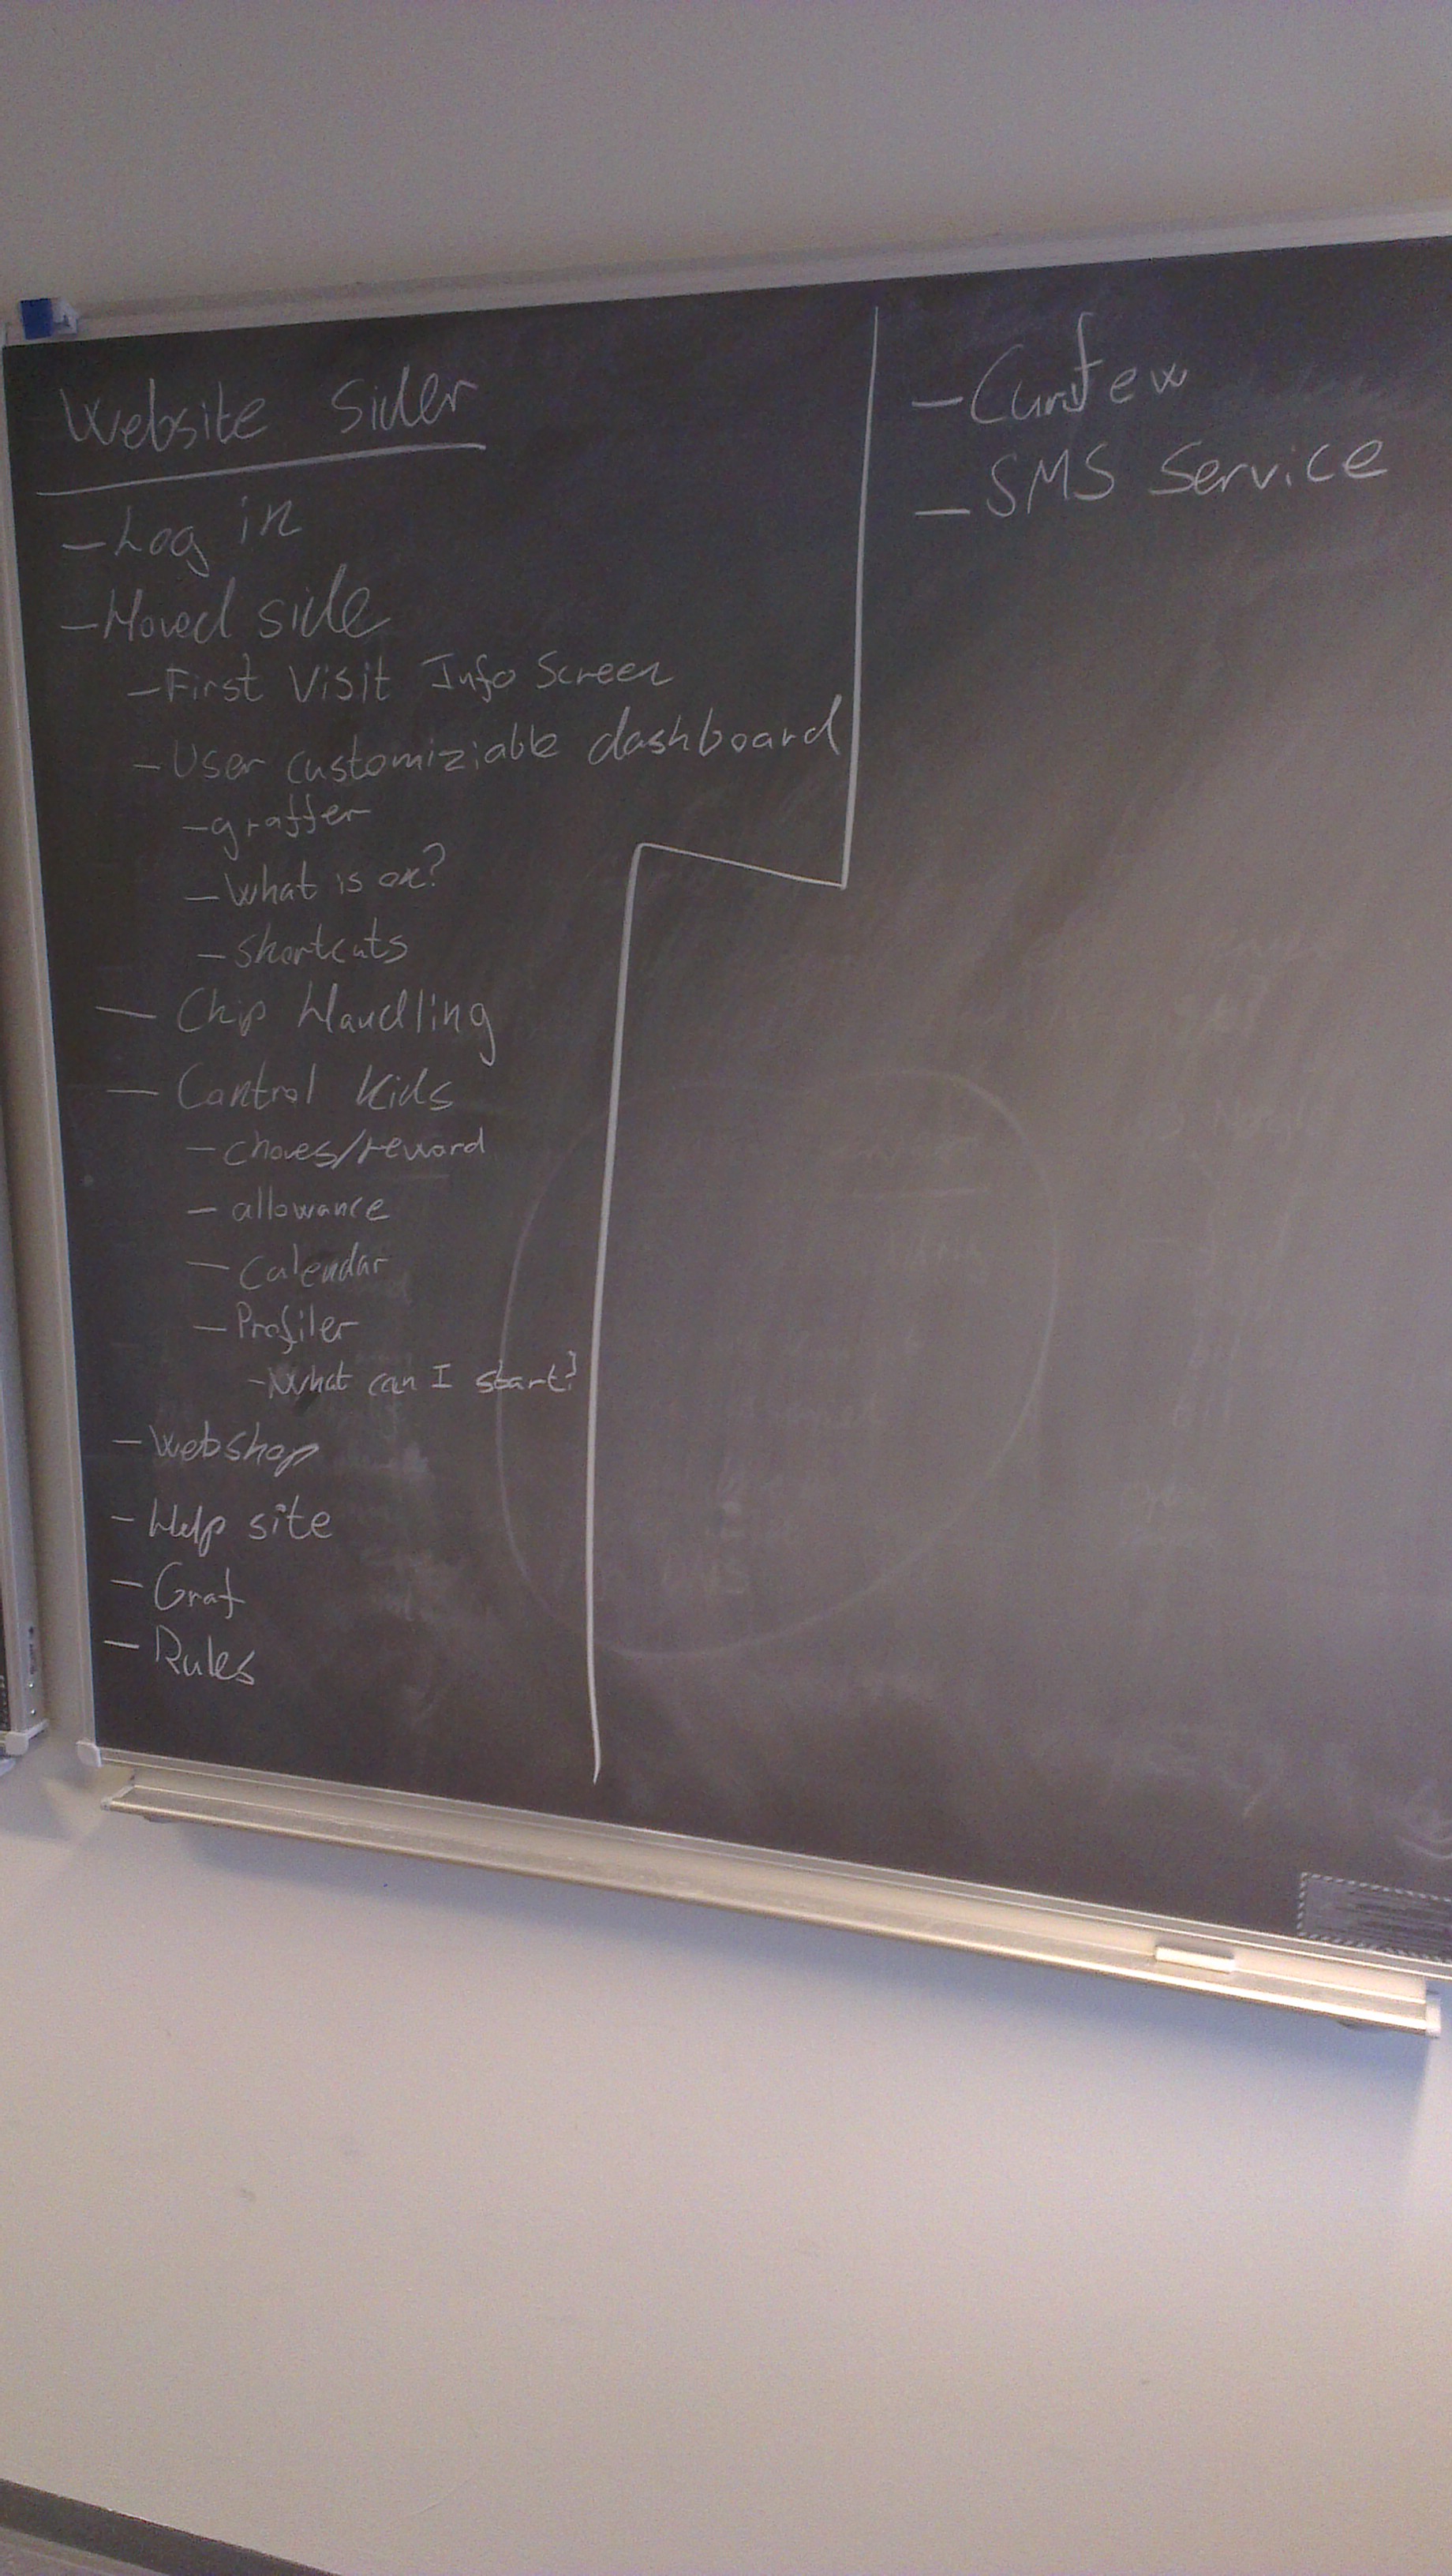 Website Sider
- Log in
- Hoved side
- First Visit Info Screen
- User customiziable dashboard
- graffer
- What is on?
- shortcuts
- Chip Handling
- Control Kids
- chores/reward
- allowance
- Calendar
- Profiler
- What can I start?
- Webshop
- Help site
- Graf
- Rules
- Curfew
- SMS Service